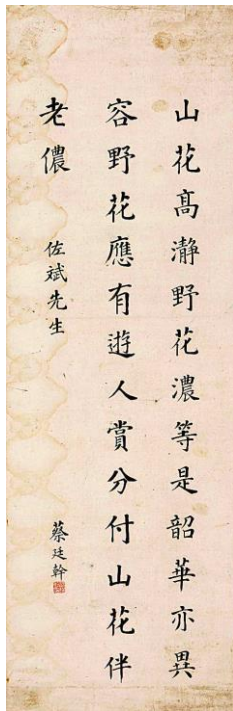 山花高瀞野花濃等是韶華亦異
容野花應有遊人賞分付山花伴
老儂
佐斌先生
蔡廷幹